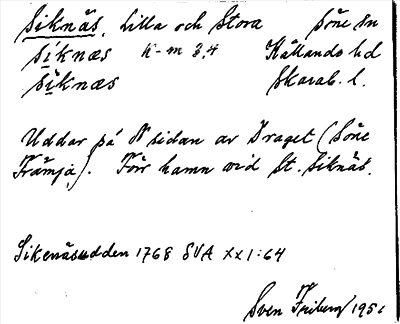 Siknäs, Lilla och Stora Söne sn
siknæs k-m 3.4 Kållands hd
siknæs Skarab. l.
Uddar på N sidan av Draget (Söne
Främja). Förr hamn vid St. Siknäs.
Sikenäsudden 1768 SVA XXI:64
Sven Friberg 1951